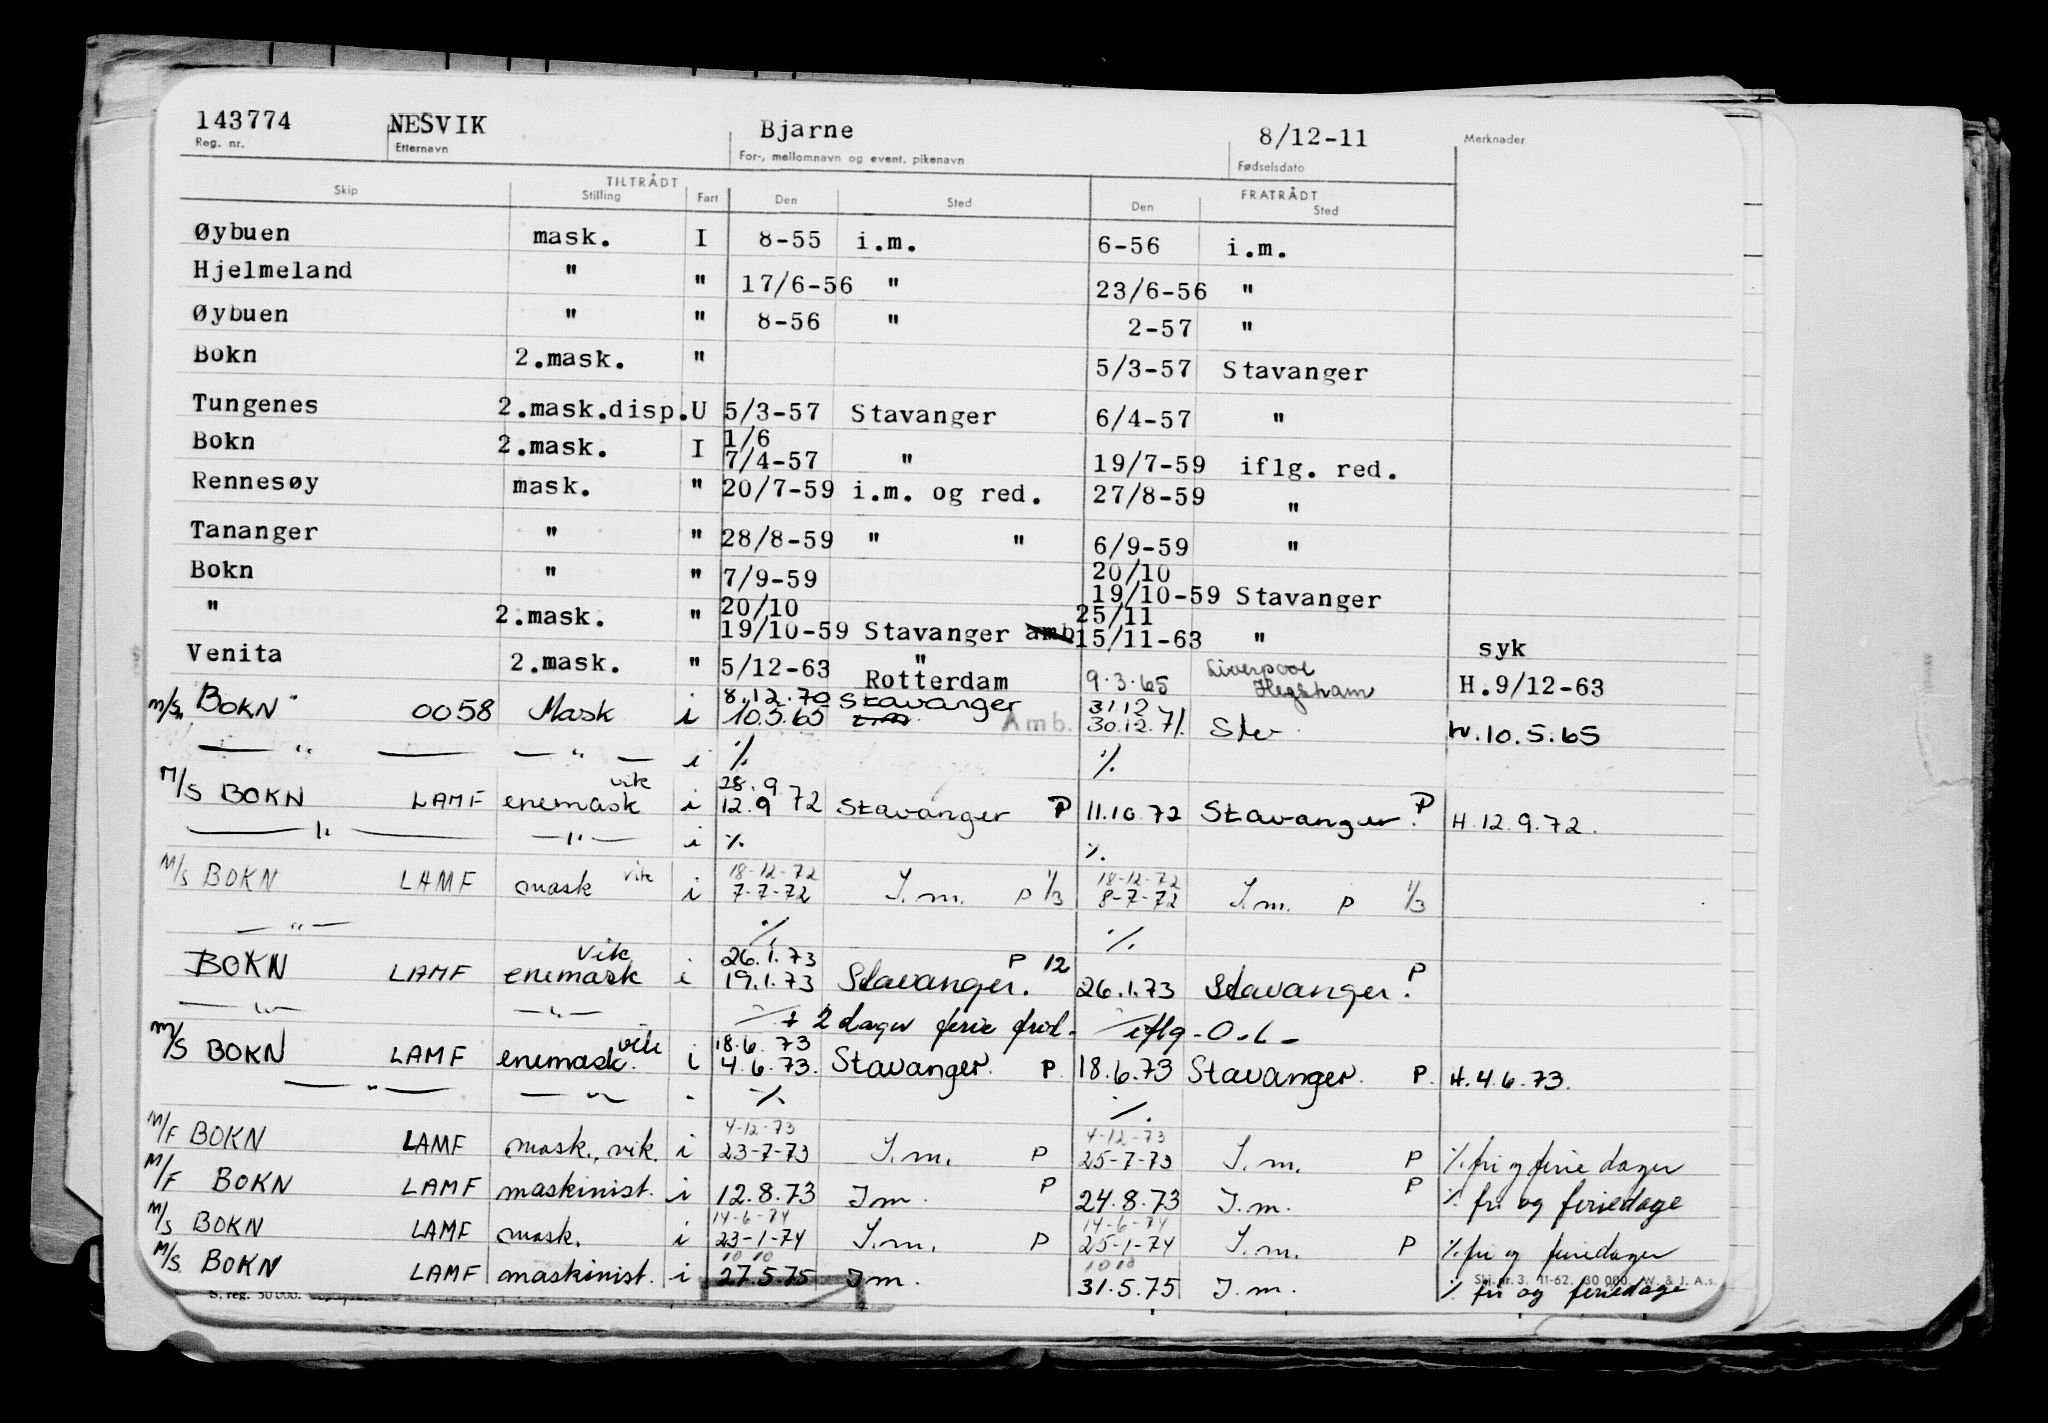 143774 NESVIK Bjarne 8/12-11 Merknader
Reg. nr. Etternavn For-, mellomnavn og event. pikenavn Fødselsdato
TILTRÅDT FRATRÅDT
Skip Stilling Fart Den Sted Den Sted
Øybuen mask. I 8-55 i.m. 6-56 i.m.
Hjelmeland " " 17/6-56 " 23/6-56 "
Øybuen " " 8-56 " 2-57 "
Bokn 2.mask. " 5/3-57 Stavanger
Tungenes 2.mask.disp. U 5/3-57 Stavanger 6/4-57 "
1/6
Bokn 2.mask. I 7/4-57 " 19/7-59 iflg. red.
Rennesøy mask. " 20/7-59 i.m. og red. 27/8-59 "
Tananger " " 28/8-59 " " 6/9-59 "
20/10
Bokn " " 7/9-59 19/10-59 Stavanger
20/10 25/11
" 2.mask. " 19/10-59 Stavanger amb 15/11-63 " syk
Venita 2.mask. " 5/12-63 " Rotterdam 9.3.65 Liverpool H.9/12-63
8.12.70 Stavanger 31.12
m/s BOKN 0058 Mask i 10.5.65 Amb. 30.12.71. Stv W.10.5.65
— " — — " — i % %
28.9. vik
M/S BOKN LAMF enemask i 12.9 72 Stavanger P 11.10.72 Stavanger P. H.12.9.72.
— " — — " — i % %
vik 18-12-72 18-12-72
M/S BOKN LAMF mask i 7-7-72 I.m. P 1/3 8-7-72 I.m. P 1/3
— " — % %
Vik 26.1.73 P 12 P
BOKN LAMF enemask i 19.1.73 Stavanger. 26.1.73 Stavanger.
— " — — " — % + 2 dager ferie % iflg - O.L -
vik 18.6.73
M/S BOKN LAMF enemask. i 4.6.73. Stavanger. P. 18.6.73 Stavanger. P. H.4.6.73.
— " — — " — % %
4-12-73 4-12-73
M/F BOKN LAMF mask., vik. i 23-7-73 I.m. P 25-7-73 I.m. P % fri og ferie dager
M/F BOKN LAMF maskinist. i 12.8.73 I m. P 24.8.73 I.m. P % fri og feriedage
14-6-74 14-6-74
M/S BOKN LAMF mask. i 23-1-74 I.m. P 25-1-74 I.m. P % fri og feriedager
10 10 10 10
M/S BOKN LAMF maskinist. i 27.5.75 I m. 31.5.75 I.m. % fri og feriedage
Skj. nr. 3. 11-62. 30 000. W. & J. A.s.
S. reg. 50 000.